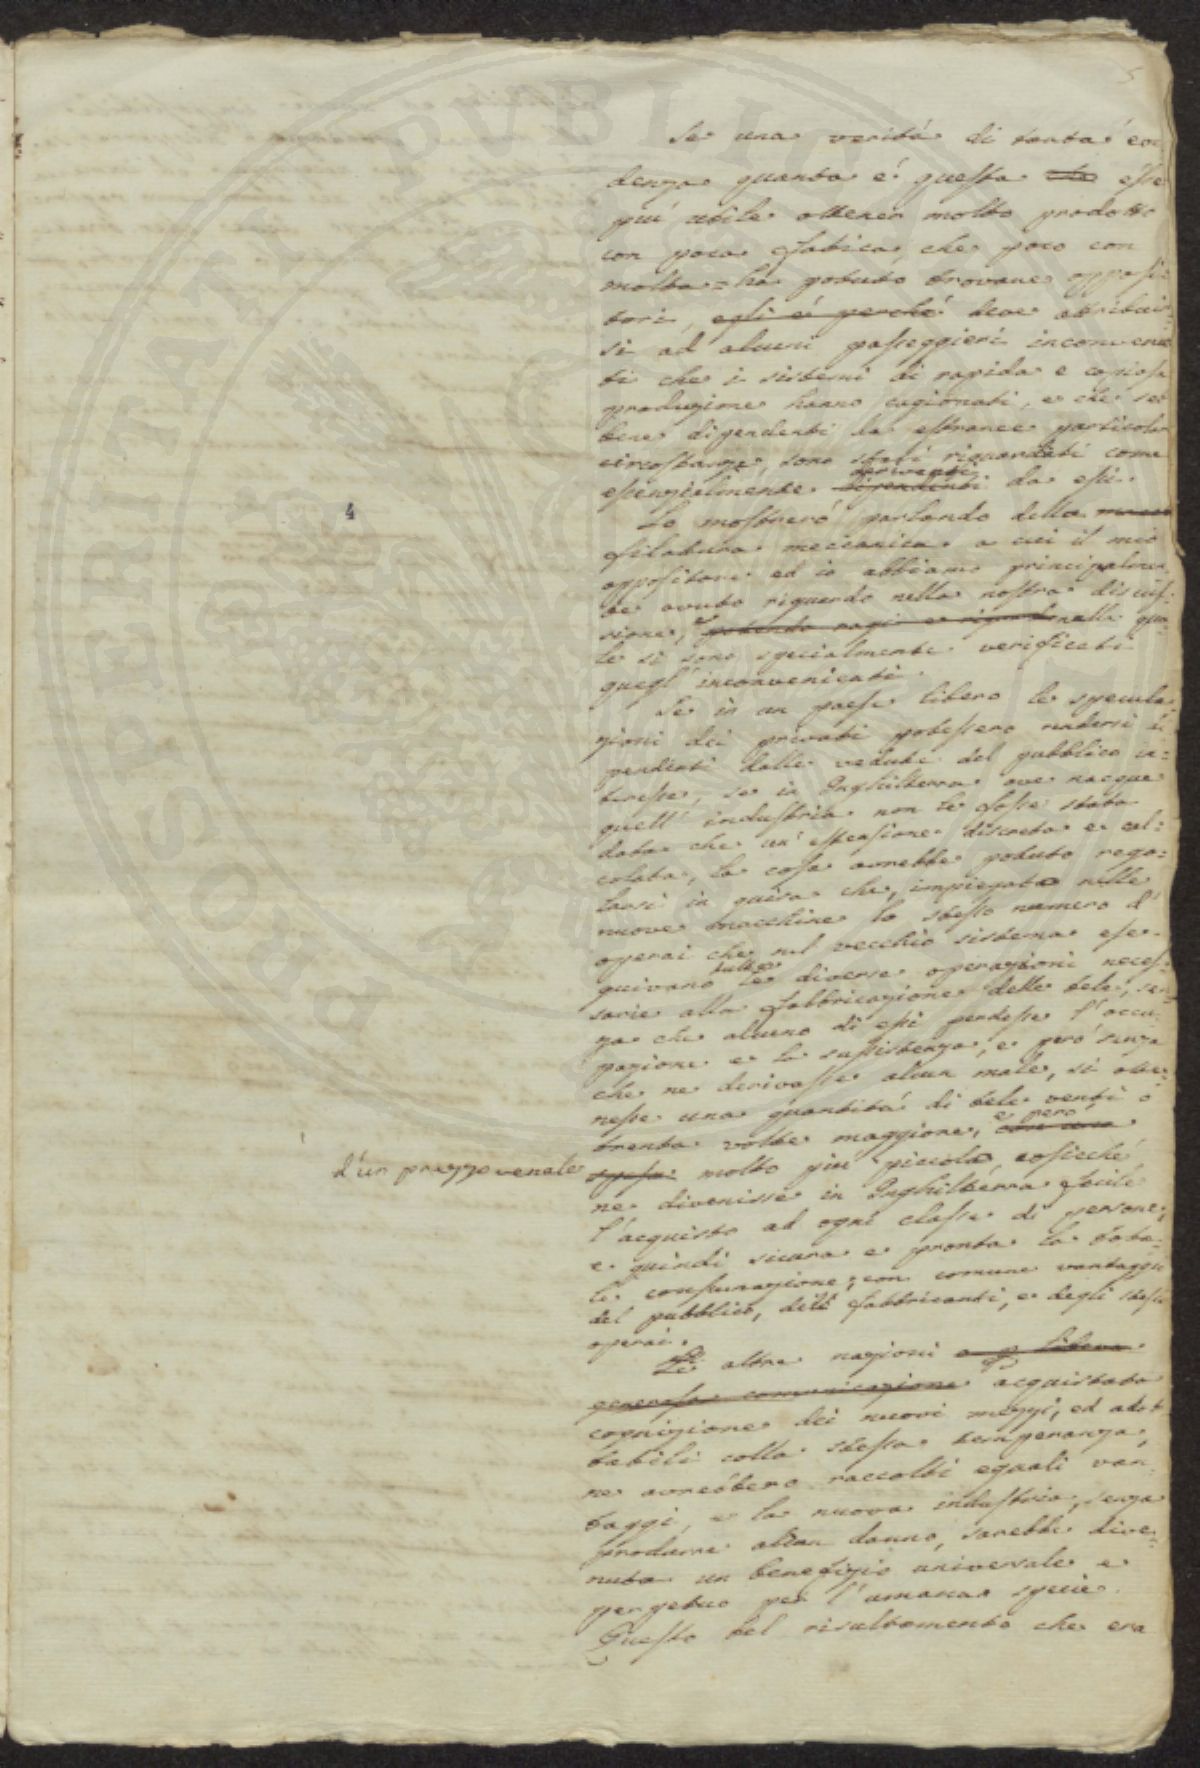 5
Se una veritá di tanta evi
denza quanta é questa ~~che~~ esse
piú utile ottener molto prodotto
con poca fatica, che poco con
molta = ha potuto trovare opposi
tori, ~~egli é perché~~ deve attribuir
si ad alcuni passeggieri inconvenien
ti che i sistemi di rapida e copiosa
produzione hanno cagionati, e che seb
bene dipendenti da estranee particolar
circostanze, sono stati riguardati come
essenzialmente ~~dipendenti~~ derivanti da essi.
4
Lo mostreró parlando della
filatura meccanica a cui il mio
oppositore ed io abbiamo principalmen
te avuto riguardo nella nostra discus-
sione, e nella qua-
le si sono specialmente verificati
quegl' inconvenienti.
Se in un paese libero le specula
zioni dei privati potessero rendersi di
pendenti dalle vedute del pubblico in-
teresse, se in Inghilterra ove nacque
quell' industria non le fosse stata
data che un' estensione discreta e cal-
colata, la cosa avrebbe potuto rego-
larsi in guisa che, impiegato nelle
nuove macchine lo stesso numero d'
operai che nel vecchio sistema ese-
guivano tutte le diverse operazioni neces-
sarie alla fabbricazione delle tele, sen
za che alcuno di essi perdesse l'occu-
pazione e la sussistenza, e peró senza
che ne derivasse alcun male, si otte-
nesse una quantitá di tele venti o
trenta volte maggiore, e peró
d'un prezzo venale ~~spesa~~ molto piú piccolo, cosicché
ne divenisse in Inghilterra facile
l'acquisto ad ogni classe di persone,
e quindi sicura e pronta la tota-
le consumazione; con comune vantaggio
del pubblico, dei fabbricanti, e degli stessi
operai.
Le altre nazioni ~~e p libera~~
~~generosa comunicazione~~ acquistata
cognizione dei nuovi mezzi, ed adot
tatili colla stessa temperanza,
ne avrebbero raccolti eguali van-
taggi, e la nuova industria, senza
produrre alcun danno, sarebbe dive-
nuta un benefizio universale e
perpetuo per l'umana specie.
Questo bel risultamento che era